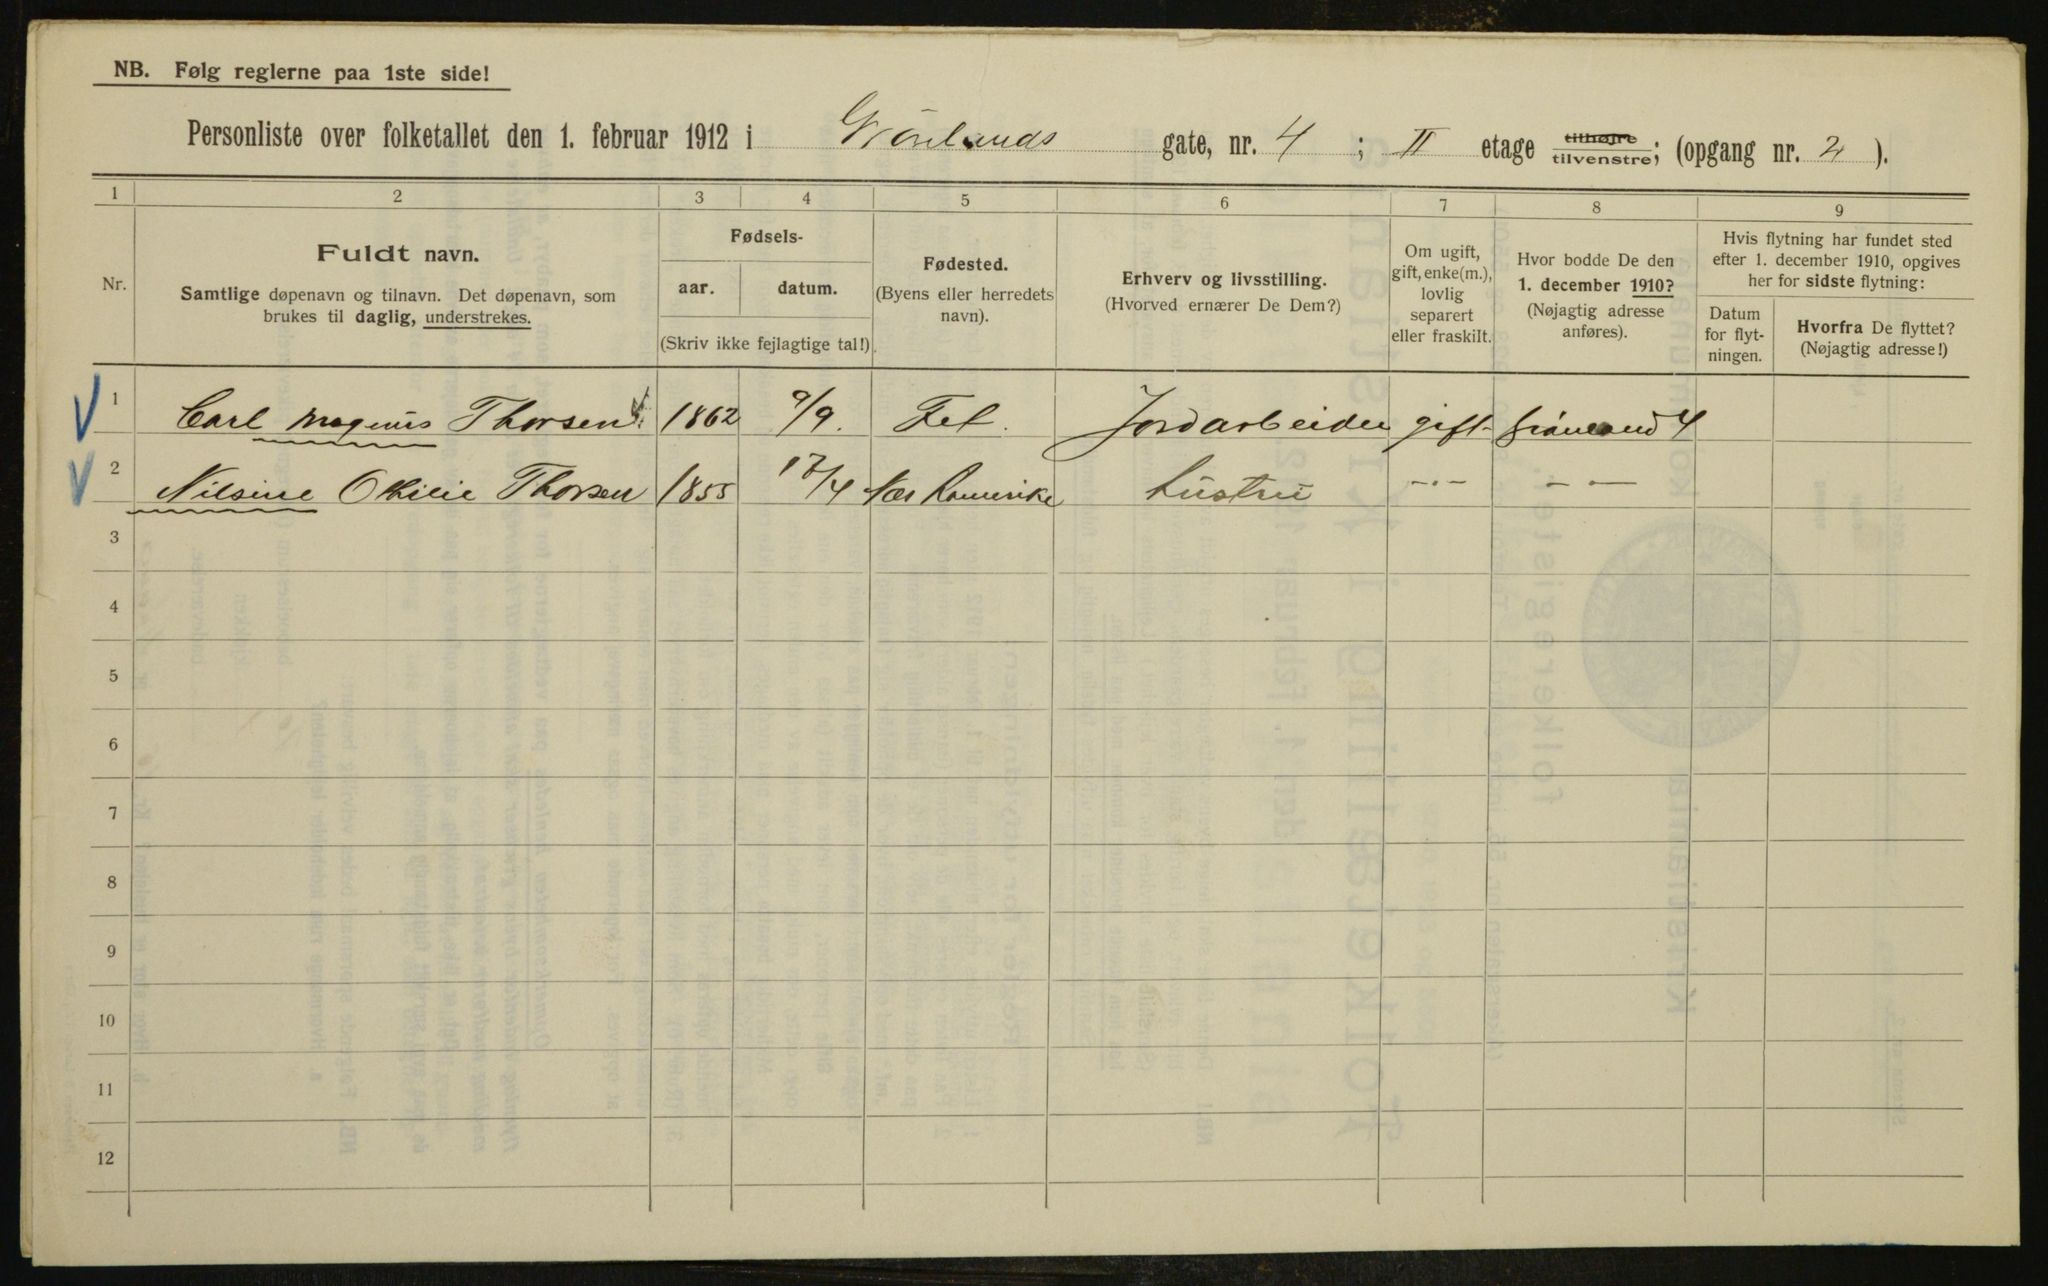 NB. Følg reglerne paa 1ste side!
Personliste over folketallet den 1. februar 1912 i Grönlands gate, nr. 4 ; II etage tilhøjre tilvenstre; (opgang nr. 2 ).
1 2 3 4 5 6 7 8 9
Nr.
Fuldt navn.
Samtlige døpenavn og tilnavn. Det døpenavn, som
brukes til daglig, understrekes.
Fødsels-
aar. datum.
(Skriv ikke fejlagtige tal!)
Fødested.
(Byens eller herredets
navn).
Erhverv og livsstilling.
(Hvorved ernærer De Dem?)
Om ugift,
gift, enke(m.),
lovlig
separert
eller fraskilt.
Hvor bodde De den
1. december 1910?
(Nøjagtig adresse
anføres).
Hvis flytning har fundet sted
efter 1. december 1910, opgives
her for sidste flytning:
Datum
for flyt-
ningen.
Hvorfra De flyttet?
(Nøjagtig adresse!)
1 Carl Magnus Thorsen 1862 9/9. Fet. Jordarbeider gift Grönland 4
2 Nilsine Othilie Thorsen 1855 17/4 Nes Romerike hustru -·- - -
3
4
5
6
7
8
9
10
11
12